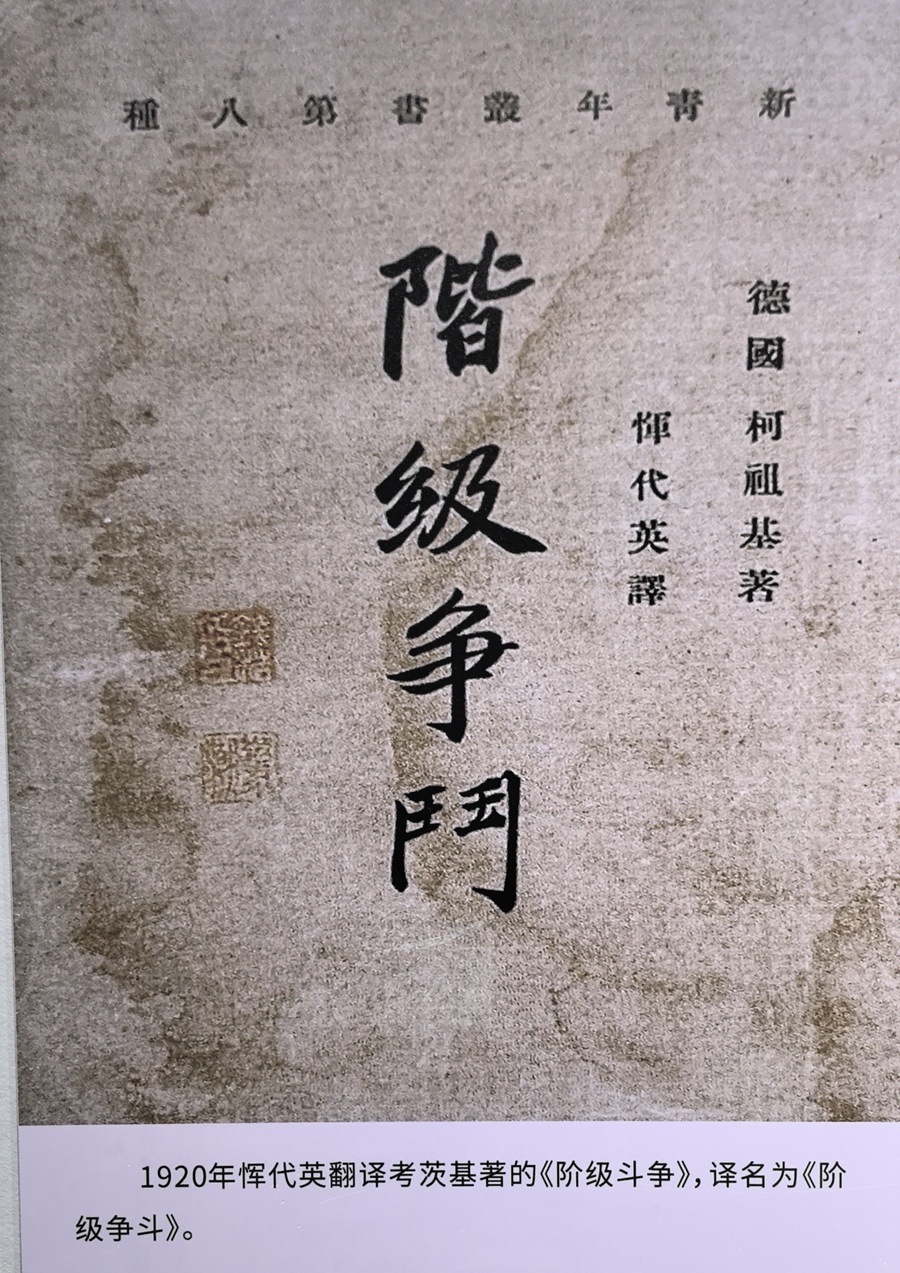 新青年叢書第八種
德國 柯祖基著
惲代英譯
階級争鬥
1920年恽代英翻译考茨基著的《阶级斗争》，译名为《阶
级争斗》。